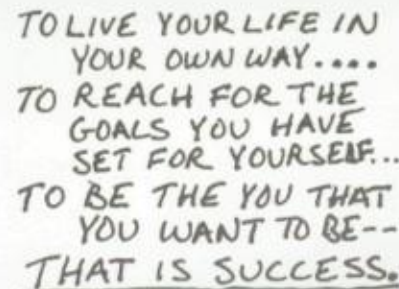 TO LIVE YOUR LIFE IN
YOUR OWN WAY....
TO REACH FOR THE
GOALS YOU HAVE
SET FOR YOURSELF...
TO BE THE YOU THAT
YOU WANT TO BE--
THAT IS SUCCESS.